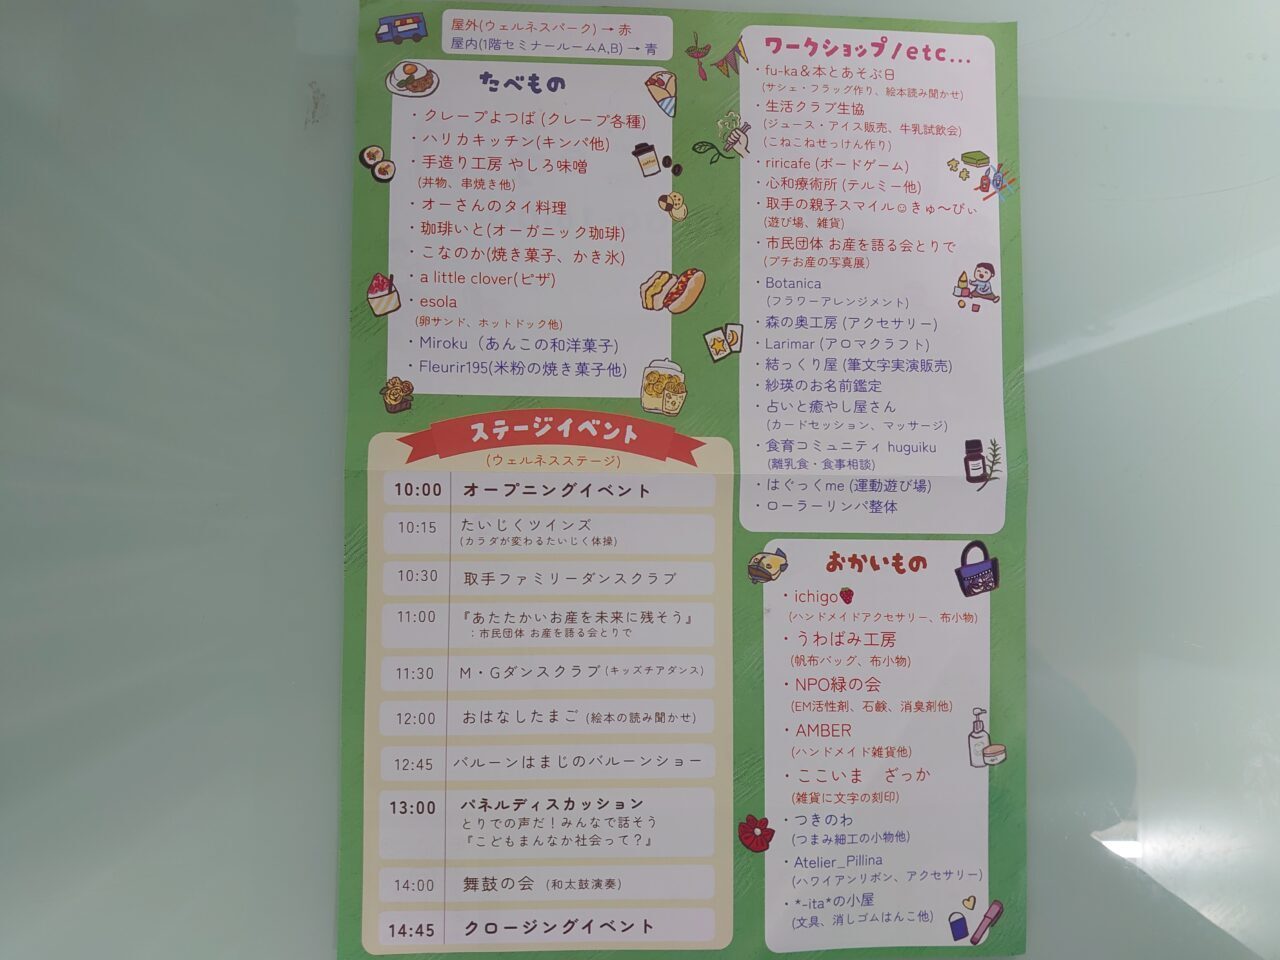 屋外(ウェルネスパーク) → 赤
屋内(1階セミナールームA,B) → 青
たべもの
・クレープよつば (クレープ各種)
・ハリカキッチン(キンパ他)
・手造り工房 やしろ味噌
(丼物、串焼き他)
・オーさんのタイ料理
・珈琲いと(オーガニック珈琲)
・こなのか(焼き菓子、かき氷)
・a little clover(ピザ)
・esola
(卵サンド、ホットドック他)
・Miroku (あんこの和洋菓子)
・Fleurir195(米粉の焼き菓子他)
ステージイベント
(ウェルネスステージ)
10:00 オープニングイベント
10:15 たいじくツインズ
(カラダが変わるたいじく体操)
10:30 取手ファミリーダンスクラブ
11:00 『あたたかいお産を未来に残そう』
:市民団体 お産を語る会とりで
11:30 M・Gダンスクラブ(キッズチアダンス)
12:00 おはなしたまご (絵本の読み聞かせ)
12:45 バルーンはまじのバルーンショー
13:00 パネルディスカッション
とりでの声だ!みんなで話そう
『こどもまんなか社会って?』
14:00 舞鼓の会 (和太鼓演奏)
14:45 クロージングイベント
ワークショップ/etc...
・fu-ka&本とあそぶ日
(サシェ・フラッグ作り、絵本読み聞かせ)
・生活クラブ生協
(ジュース・アイス販売、牛乳試飲会)
(こねこねせっけん作り)
・riricafe (ボードゲーム)
・心和療術所 (テルミー他)
・取手の親子スマイル☺きゅ〜びぃ
(遊び場、雑貨)
・市民団体 お産を語る会とりで
(プチお産の写真展)
・Botanica
(フラワーアレンジメント)
・森の奥工房 (アクセサリー)
・Larimar (アロマクラフト)
・結っくり屋 (筆文字実演販売)
・紗瑛のお名前鑑定
・占いと癒やし屋さん
(カードセッション、マッサージ)
・食育コミュニティ huguiku
(離乳食・食事相談)
・はぐっくme (運動遊び場)
・ローラーリンパ整体
おかいもの
・ichigo🍓
(ハンドメイドアクセサリー、布小物)
・うわばみ工房
(帆布バッグ、布小物)
・NPO緑の会
(EM活性剤、石鹸、消臭剤他)
・AMBER
(ハンドメイド雑貨他)
・ここいま ざっか
(雑貨に文字の刻印)
・つきのわ
(つまみ細工の小物他)
・Atelier_Pillina
(ハワイアンリボン、アクセサリー)
・*-ita*の小屋
(文具、消しゴムはんこ他)